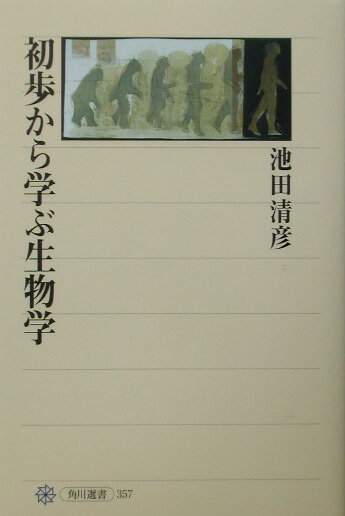 初歩から学ぶ生物学
池田清彦
角川選書 357